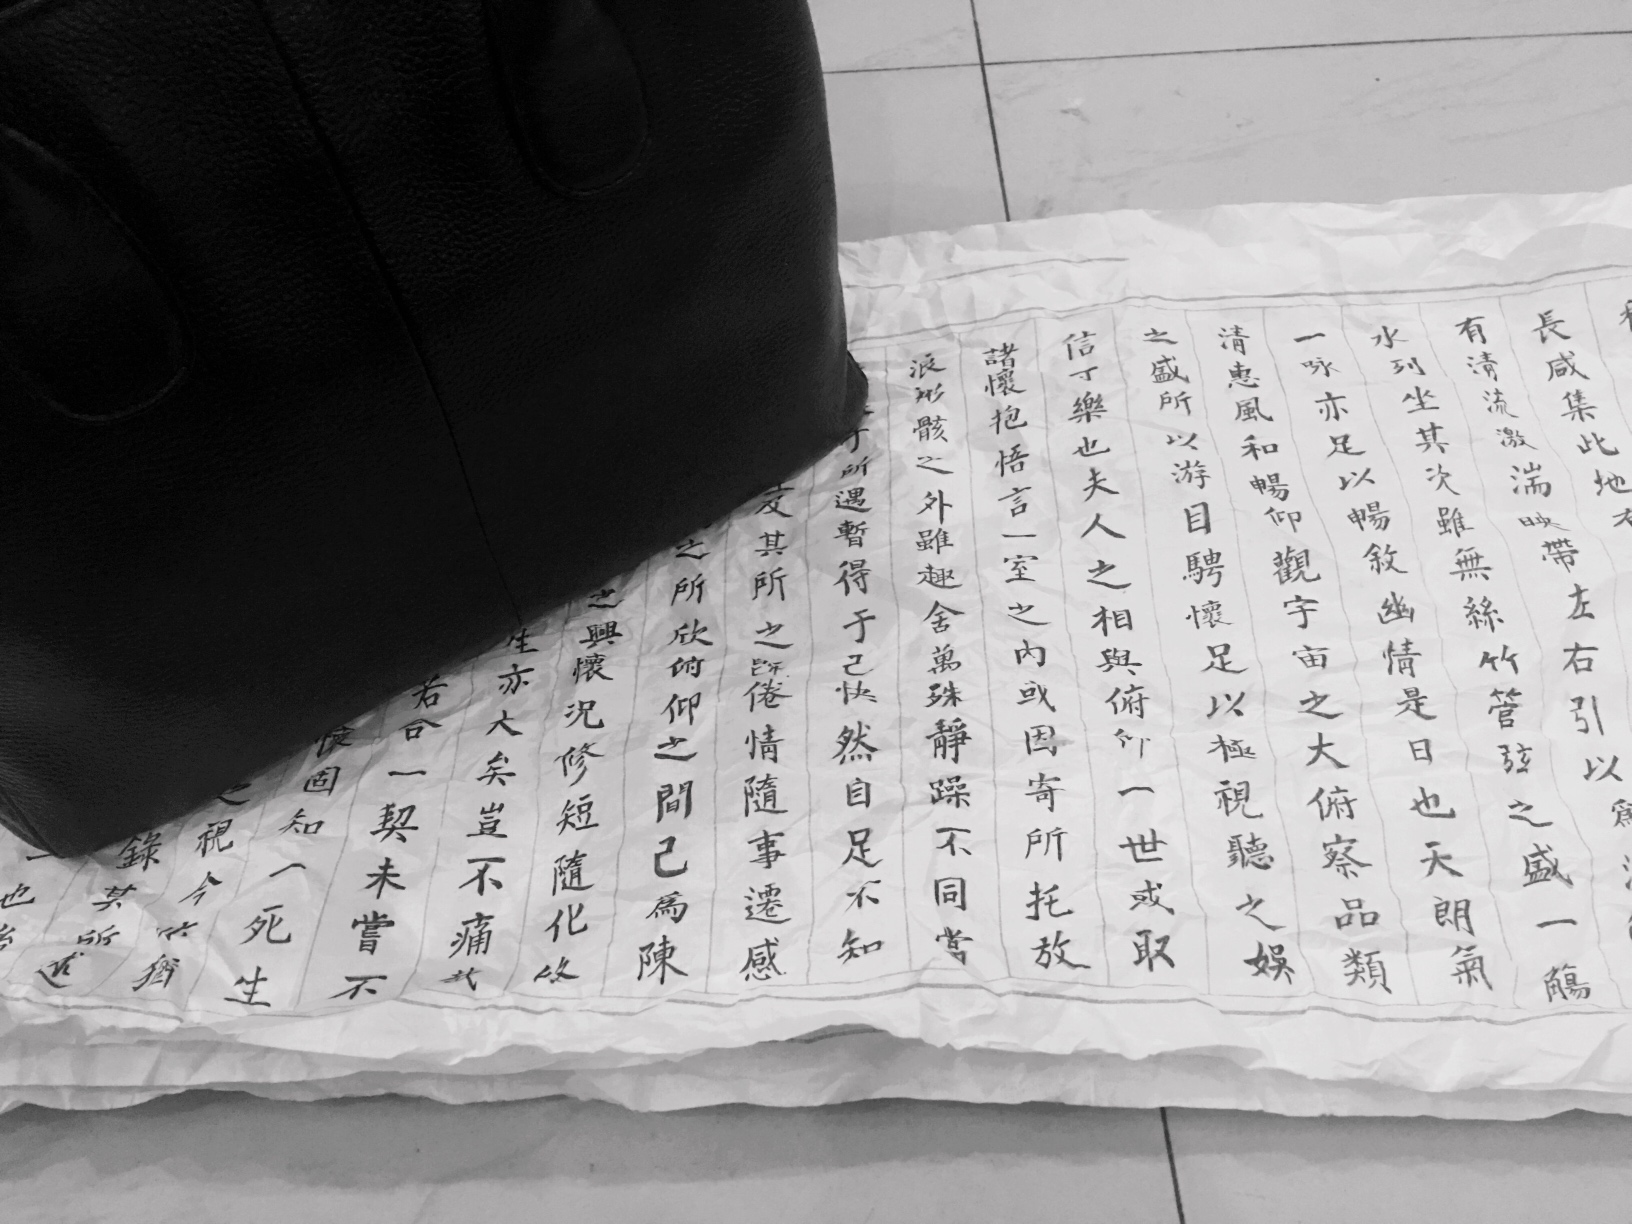 長咸集此地有
有清流激湍映帶左右引以爲
水列坐其次雖無絲竹管弦之盛一觴
一咏亦足以暢敘幽情是日也天朗氣
清惠風和暢仰觀宇宙之大俯察品類
之盛所以游目騁懷足以極視聽之娛
信可樂也夫人之相與俯仰一世或取
諸懷抱悟言一室之內或因寄所托放
浪形骸之外雖趣舍萬殊靜躁不同當
于所遇暫得于己快然自足不知
及其所之既倦情隨事遷感
之所欣俯仰之間已爲陳
之興懷況修短隨化終
生亦大矣豈不痛哉
若合一契未嘗不
懷固知一死生
之視今亦猶
錄其所述
一也後